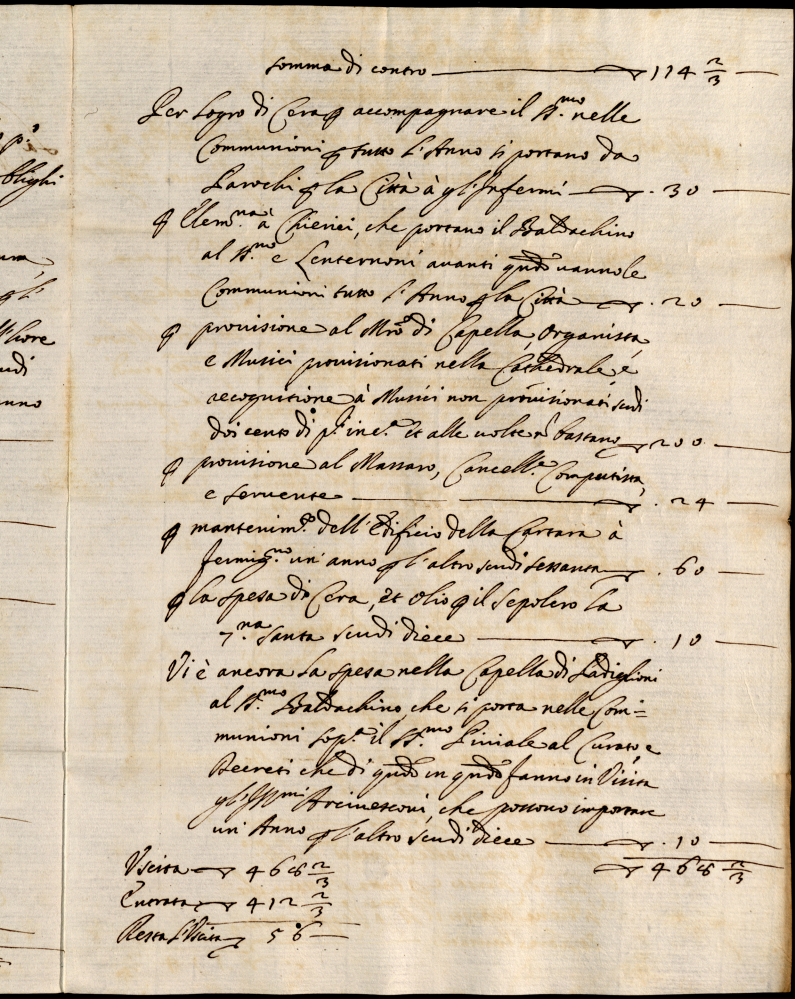 p.º
blighi
gl'
udi
anno
somma di contro — 114 2/3
Per logro di Cera p accompagnare il SS.mo nelle
Communioni p tutto l'Anno si portano da
Parochi p la Città à gl'Infermi — . 30
p Elem.na à Chierici, che portano il Baldachino
al SS.mo e Lenternoni auanti qñdo uanno le
Communioni tutto l'Anno p la Città — . 20
p prouisione al Mrõ di Capella, Organista
e Musici prouisionati nella Cathedrale, è
recognitione à Musici non prouisionati scudi
doicento di p.te inc.a et alle uolte nõ bastano — 200
p prouisione al Massaro, Cancell.e Computista,
e seruente — . 24
p mantenim.to dell'Edificio della Cartara à
fermig.no un'anno p l'altro scudi sessanta — . 60
p la spesa di Cera, et olio p il sepolcro la
7.na Santa scudi diece — . 10
Vi è ancora la spesa nella Capella di Padiglioni
al SS.mo Baldachino che si porta nelle Com=
munioni sop.a il SS.mo Piuiale al Curato, e
Decreti che di qñdo in qñdo fanno in Visita
gl'Ill.mi Arciuescoui, che possono importare
un'Anno p l'altro scudi diece — . 10
Vscita — 468 2/3 — 468 2/3
Entrata — 412 2/3
Resta l'Vscita — 56